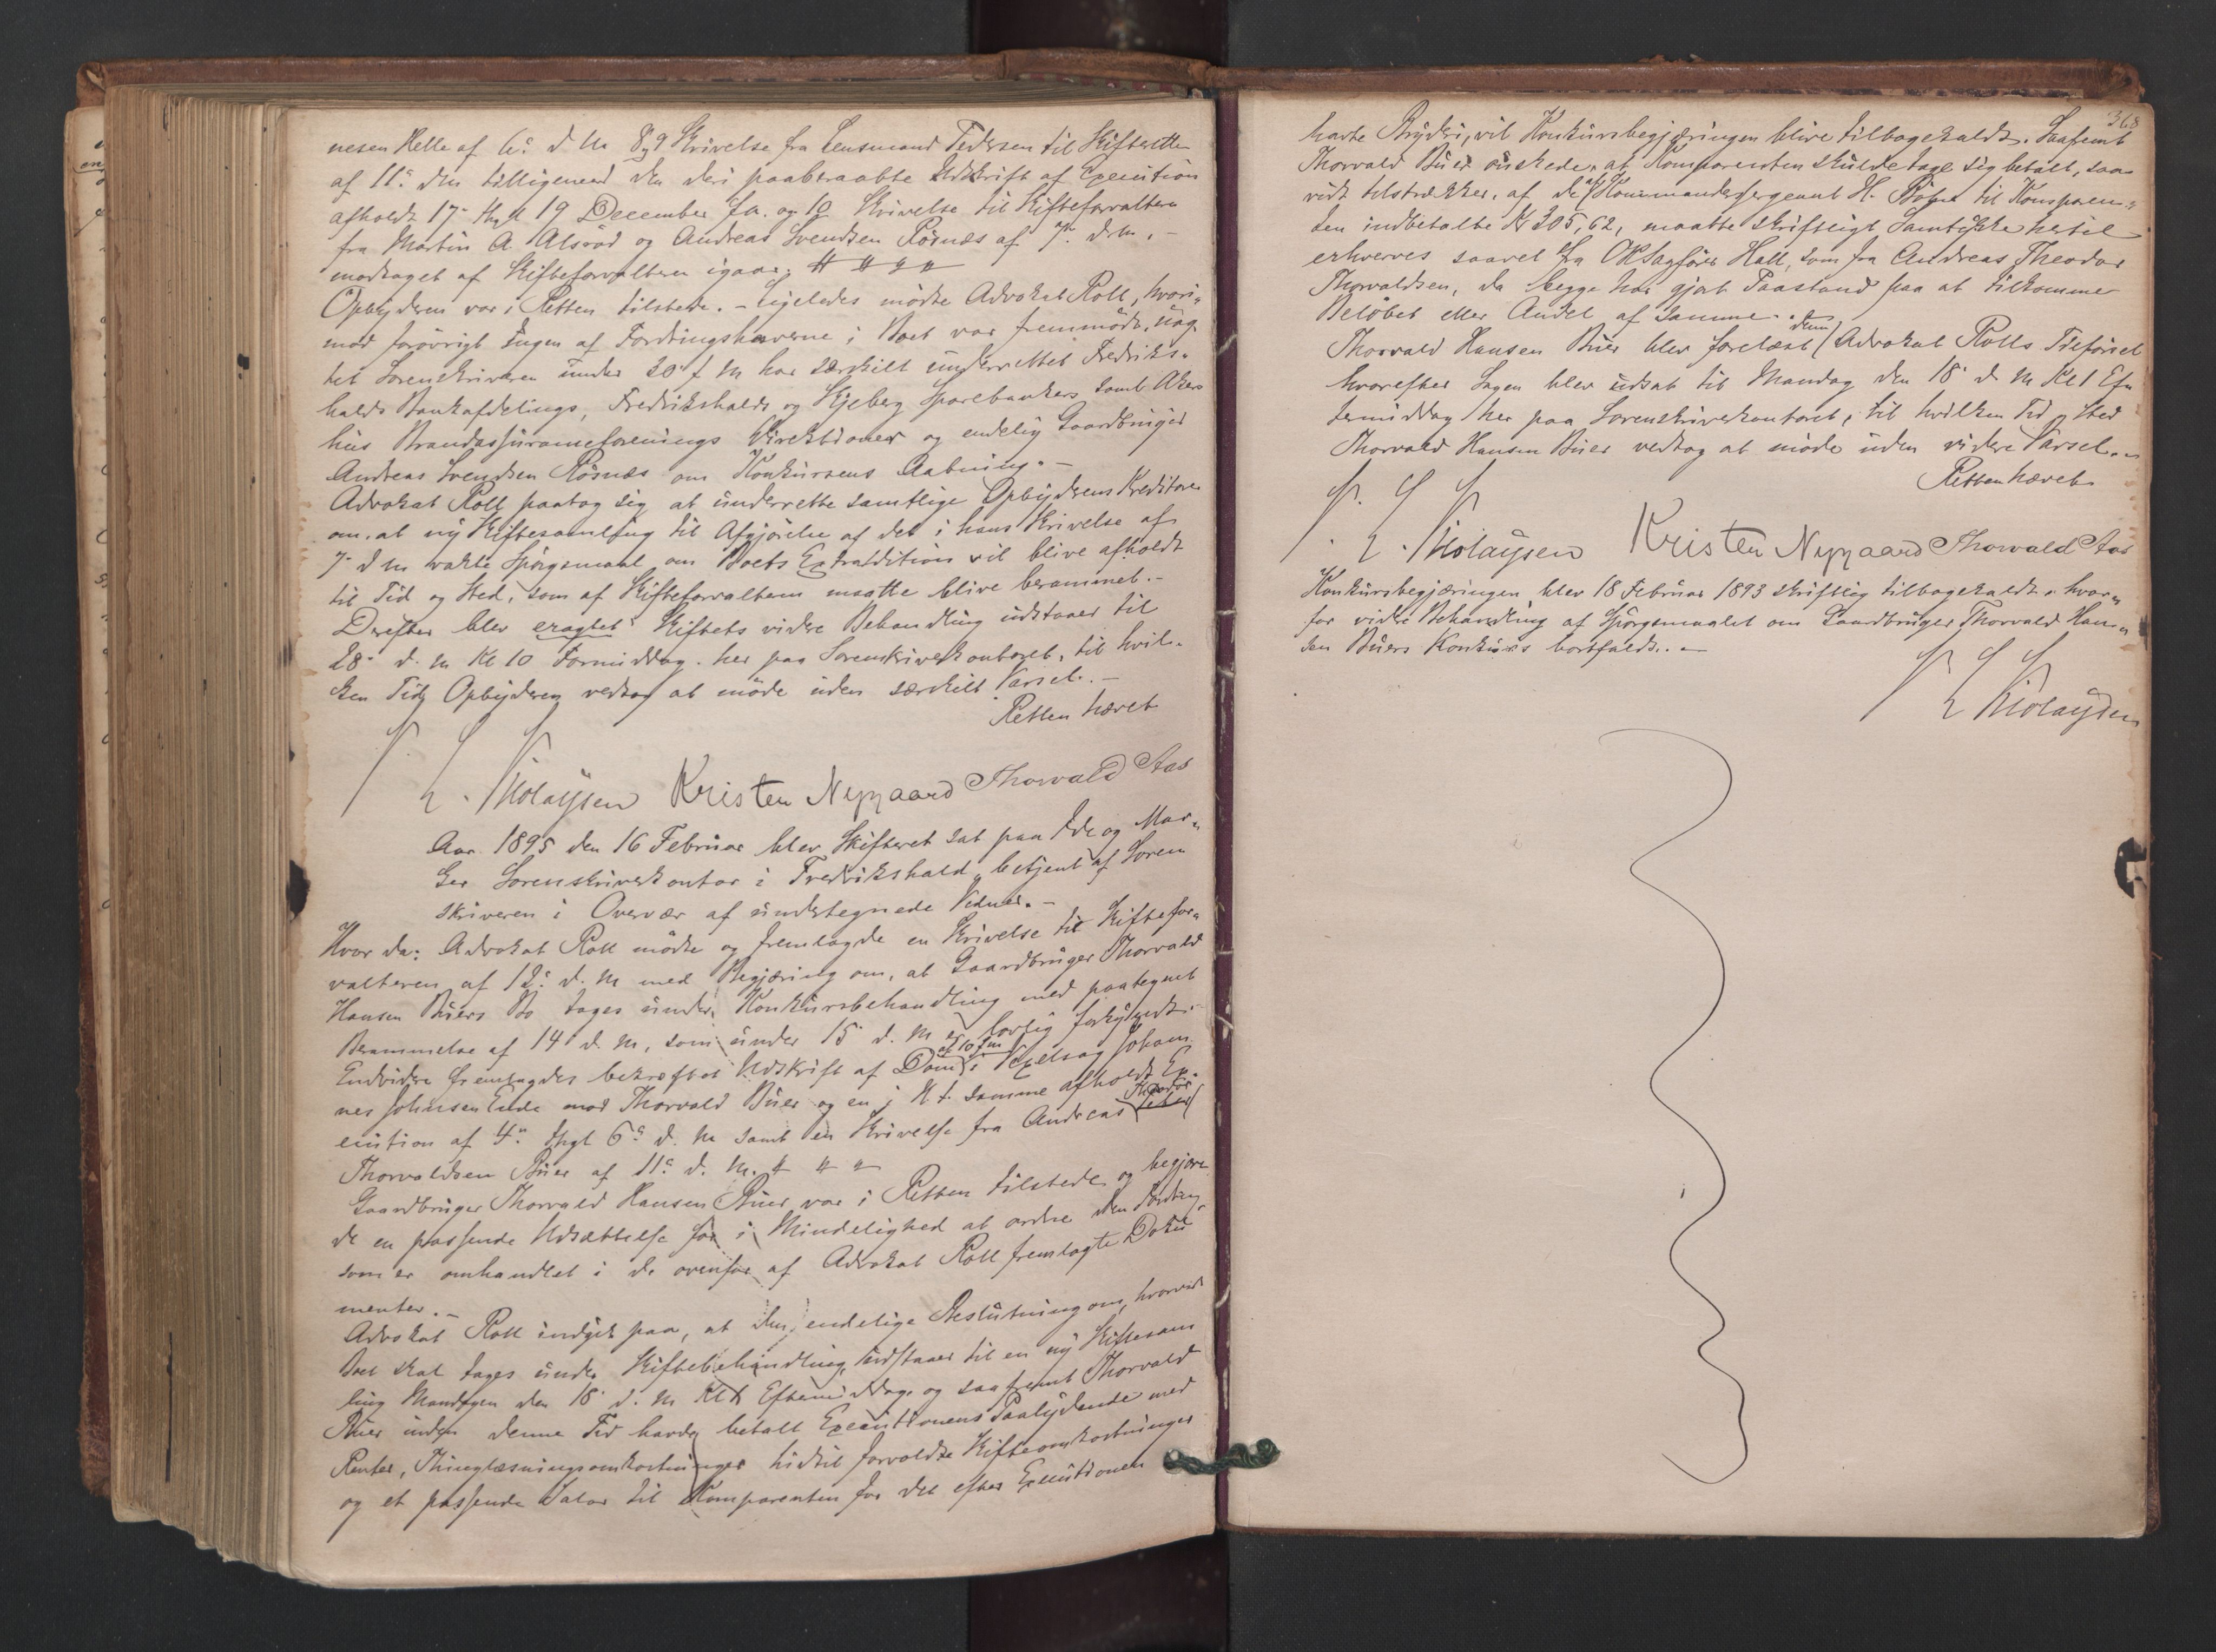 nesen Helle af 6te d M 8, 9 Skrivelse fra Lensmand Pedersen til Skifteretten
af 11te dm tilligemed den deri paaberaabte Udskrift af Execution
afholdt 17de 19 December f.a. og 10 Skrivelse til Skifteforvalteren
fra Martin A. Alsrød og Andreas Svendsen Røsnæs af 7de d.m. –
modtaget af Skifteforvalteren igaar.
Opbyderen var i Retten tilstede. – Ligeledes mødte Advokat Roll, hvori„
mod forøvrigt Ingen af Fordringshaverne i Boet var fremmødt, uag„
tet Sorenskriveren under 30 f M har særskilt underrettet Fredriks„
halds Bankafdelings, Fredrikshalds og Skjeberg Sparebankers samt Akers
hus Brandassuranceforenings Direktioner og endelig Gaardbruger
Andreas Svendsen Røsnæs om Konkursens Aabning. –
Advokat Roll paatog sig at underrette samtlige Opbyderens Kreditorer
om, at ny Skiftesamling til Afgjørelse af det i hans Skrivelse af
7de d m vakte Spørgsmaal om Boets Extradition vil blive afholdt
til Tid og Sted, som af Skifteforvalteren maatte blive berammet. –
Derefter blev eragtet: Skiftets videre Behandling udstaaer til
28de d. m Kl 10 Formiddag. her paa Sorenskriverkontoret, til hvil„
ken Tid Opbyderen vedtog at møde uden særskilt Varsel. –
Retten hævet
Nolaysen Kristen Nygaard Thorvald Aas
Aar 1895 den 16 Februar blev Skifteret sat paa Ide og Mar„
ker Sorenskriverkontor i Fredrikshald, betjent af Soren
skriveren i Overvær af undertegnede Vidner. –
Hvor da: Advokat Roll mødte og fremlagde en Skrivelse til Skiftefor„
valteren af 12te d. M med Begjæring om, at Gaardbruger Thorvald
Hansen Buers Bo tages under Konkursbehandling med paategnet
Berammelse af 14 d. M, som under 15 d. M er lovlig forkyndt. –
Endvidere fremlagdes bekræftet Udskrift af Dom af 10 f m i Vexelsag Johan
nes Johnsen Ende mod Thorvald Buer og en i H. t. samme afholdt Ex„
ecution af 4de 6te d. M samt en Skrivelse fra Andreas Theodor
Thorvaldsen Buer af 11te d. M.
Gaardbruger Thorvald Hansen Buer var i Retten tilstede og begjære
de en passende Udsættelse for i Mindelighed at ordne den Fordring
som er omhandlet i de ovenfor af Advokat Roll fremlagte Doku„
menter. –
Advokat Roll indgik paa, at den endelige Beslutning om, hvorvidt
Boet skal tages under Skiftebehandling, udstaaer til en ny Skiftesam
ling Mandagen den 18 d. M Kl 1 Eftermiddag og saafremt Thorvald
Buer inden denne Tid havde betalt Executionens Paalydende med
Renter, Thinglæsningsomkostninger hidtil forvoldte Skifteomkostninger
og et passende Salær til Komparenten for det efter Executionen
368
havte Bryderi, vil Konkursbegjæringen blive tilbagekaldt. Saafremt
Thorvald Buer ønskede, at Komparenten skulde tage sig betalt, saa
vidt tilstrækker, af de af Kommandersergeant H. Bøhn til Komparen„
ten indbetalte Kr 305,62, maatte skriftligt Samtykke hertil
erhverves saavel fra OR Sagfører Hall, som fra Andreas Theodor
Thorvaldsen, da begge har gjort Paastand paa at tilkomme
Beløbet eller Andel af samme. –
Thorvald Hansen Buer blev forelæst denne Advokat Rolls Tilførsel
hvorefter Sagen blev udsat til Mandag den 18 d. M Kl 1 Ef„
termiddag her paa Sorenskriverkontoret, til hvilken Tid og Sted
Thorvald Hansen Buer vedtog at møde uden videre Varsel. –
Retten hævet
Nolaysen Kristen Nygaard Thorvald Aas
Konkursbegjæringen blev 18 Februar 1893 skriftlig tilbagekaldt, hvor„
for videre Behandling af Spørgsmaalet om Gaardbruger Thorvald Han„
sen Buers Konkurs bortfaldt. –
Nolaysen